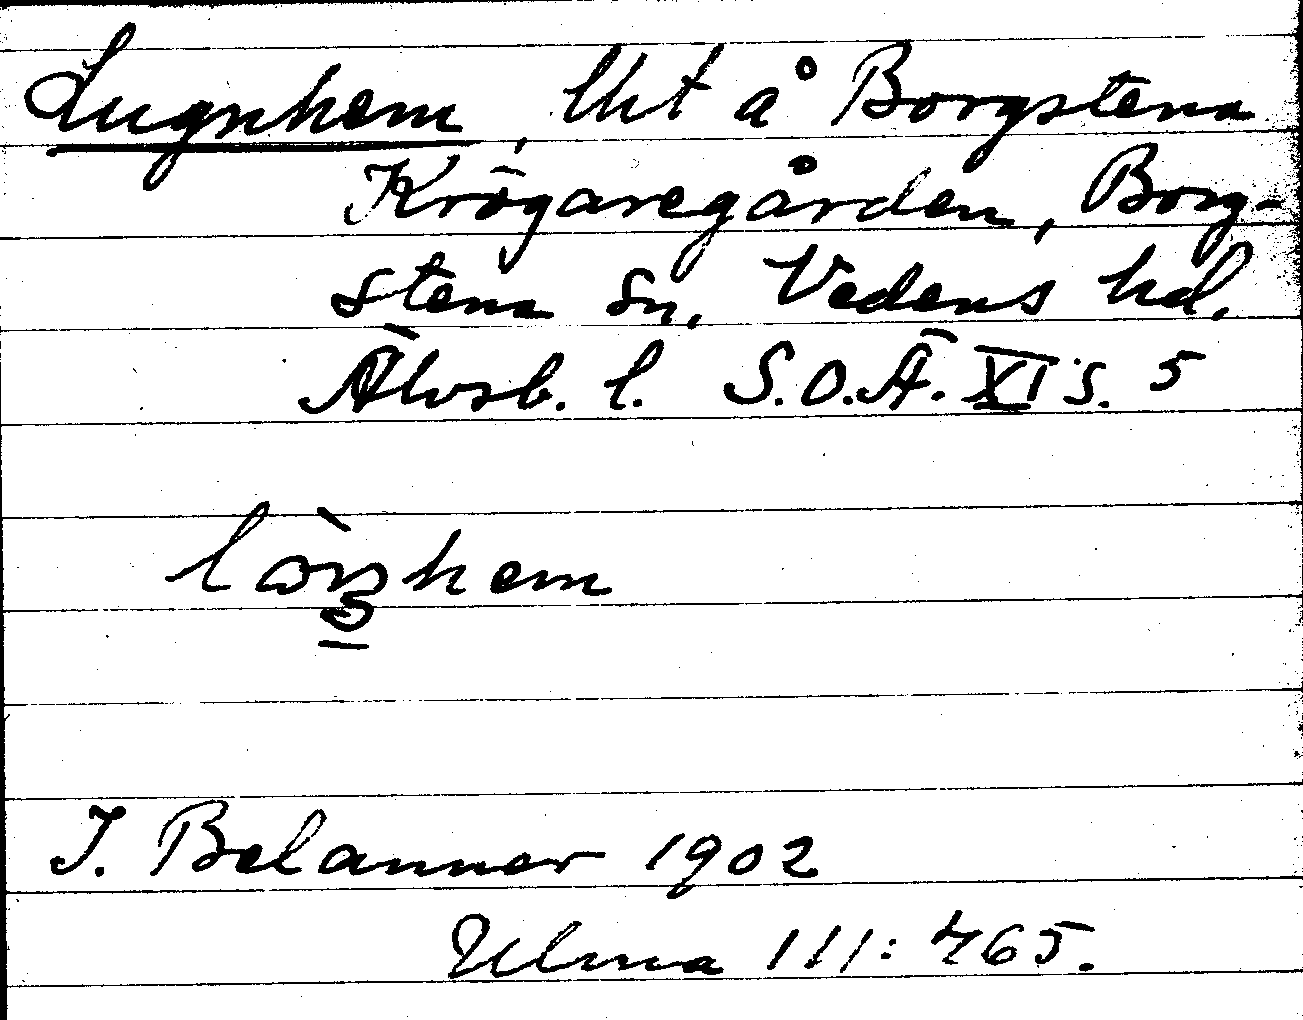 Lugnhem, lht å Borgstena
Krögaregården, Borg-
stena sn, Vedens hd.
Älvsb. l. S.O.Ä. XI s. 5
J. Belanner 1902
Ulma 111: 765.